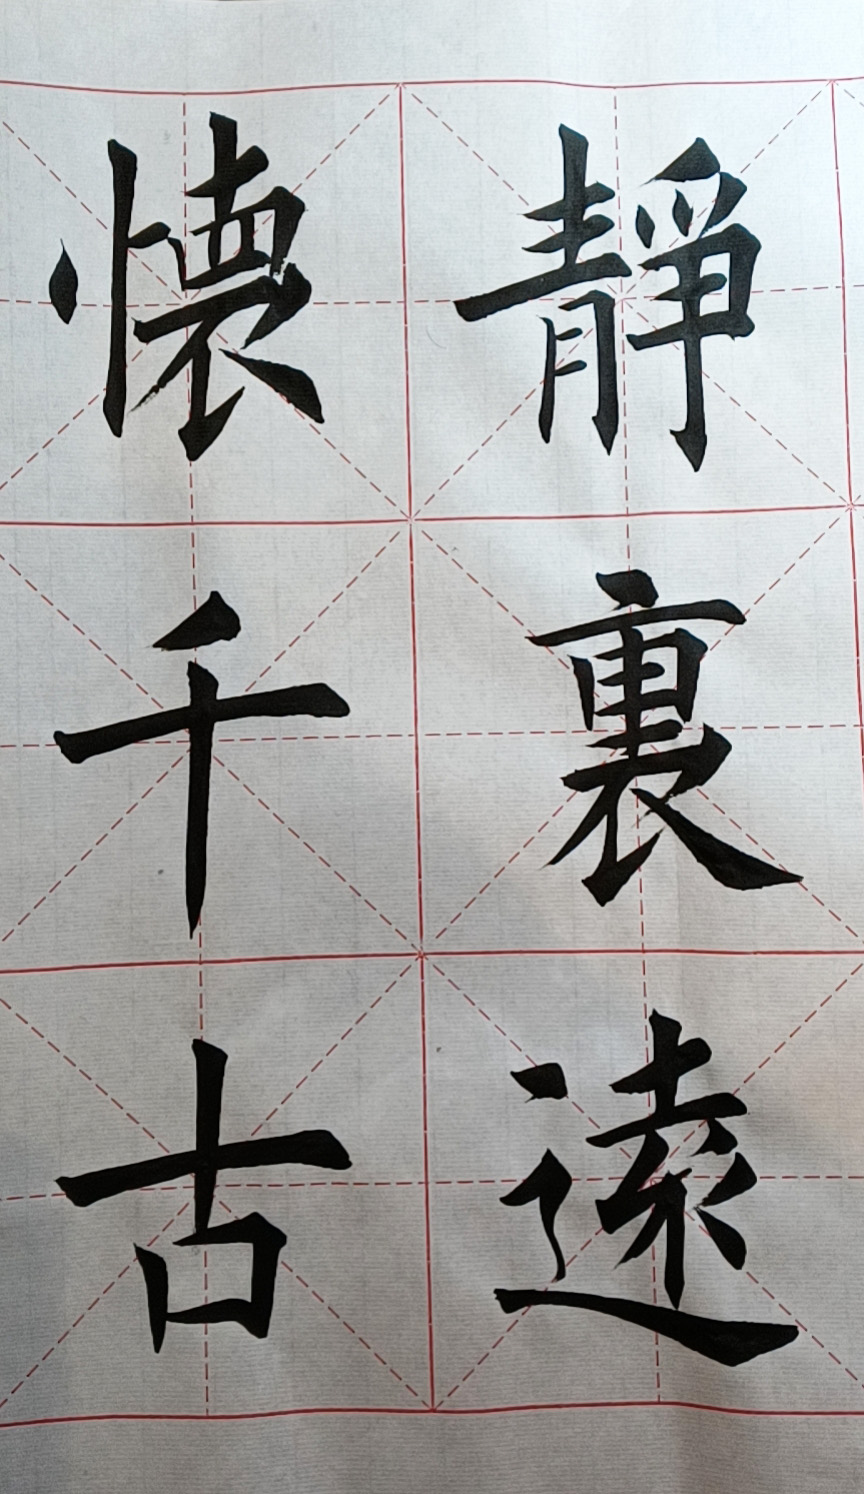 靜裏遠
懐千古